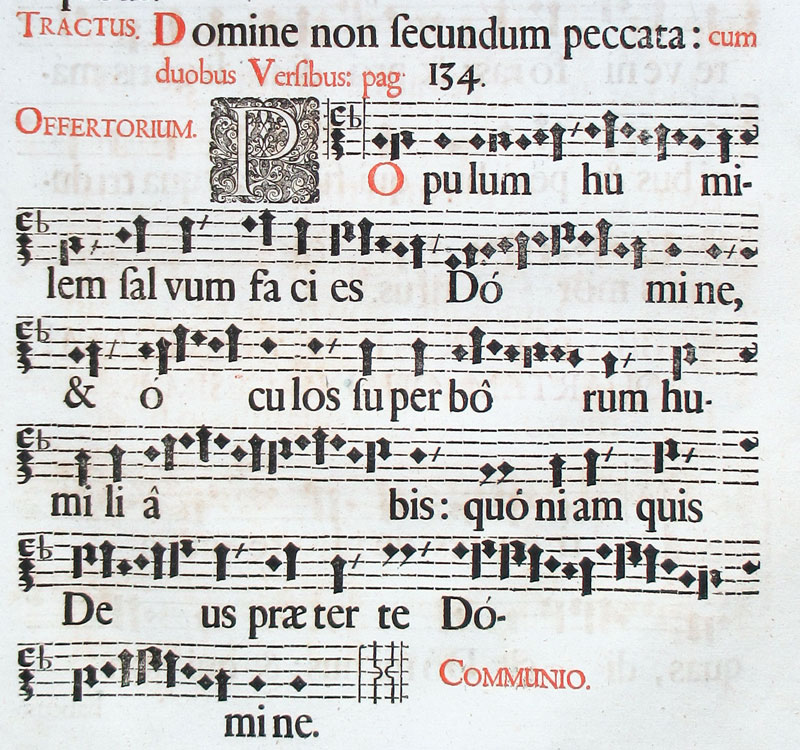 TRACTUS. Domine non ſecundum peccata: cum
duobus Verſibus: pag 134.
OFFERTORIUM.
PO pulum hu mi-
lem ſal vum fa ci es Dó mi ne,
& ó cu los ſu per bô rum hu-
mi li â bis: quó ni am quis
De us præ ter te Dó-
mi ne.
COMMUNIO.